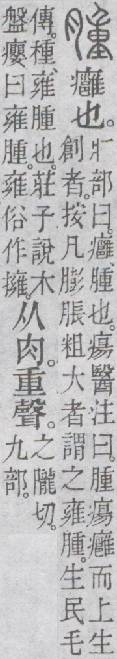 腫 癰也。
疒部曰。癰、腫也。瘍醫注曰。腫瘍癰而上生
創者。按凡膨脹粗大者謂之雍腫。生民毛
傳。種、雍腫也。莊子說木
盤癭曰雍腫。雍俗作擁。
从肉。重聲。
之隴切。
九部。